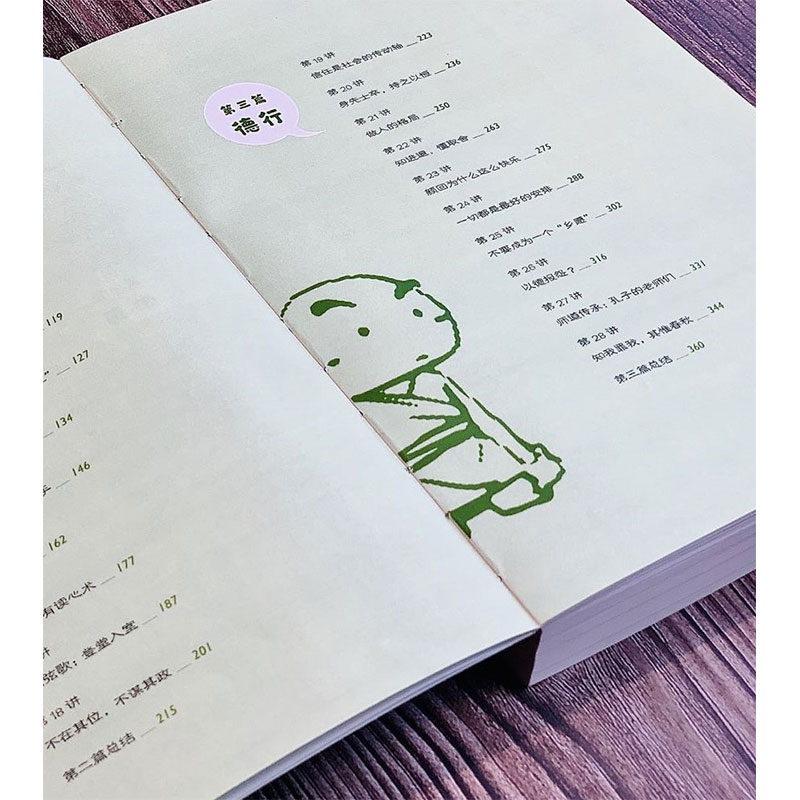 119
” __ 127
134
146
162
有读心术 __ 177
讲
弦歌：登堂入室 __ 187
第 18 讲
不在其位，不谋其政 __ 201
第二篇总结 __ 215
第三篇
德行
第 19 讲
信任是社会的传动轴 __ 223
第 20 讲
身先士卒，持之以恒 __ 236
第 21 讲
做人的格局 __ 250
第 22 讲
知进退，懂取舍 __ 263
第 23 讲
颜回为什么这么快乐 __ 275
第 24 讲
一切都是最好的安排 __ 288
第 25 讲
不要成为一个“乡愿” __ 302
第 26 讲
以德报怨？ __ 316
第 27 讲
师道传承：孔子的老师们 __ 331
第 28 讲
知我罪我，其惟春秋 __ 344
第三篇总结 __ 360